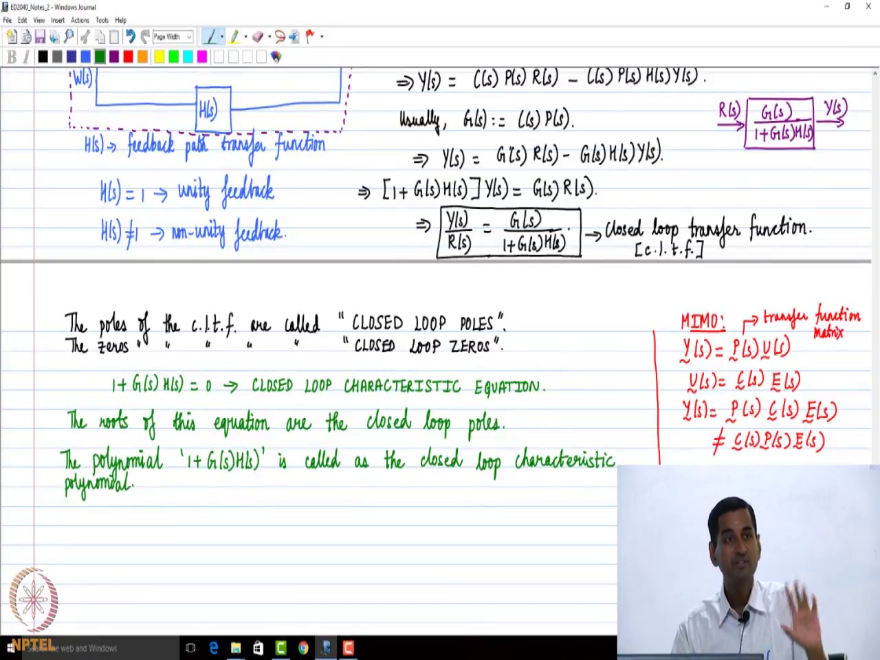 ED2040_Notes_2 - Windows Journal
File Edit View Insert Actions Tools Help
Page Width
B I
W(s)
H(s)
H(s) → feedback path transfer function
H(s) = 1 → unity feedback
H(s) ≠ 1 → non-unity feedback.
⇒ Y(s) = C(s) P(s) R(s) - C(s) P(s) H(s) Y(s).
Usually, G(s) := C(s) P(s).
⇒ Y(s) = G(s) R(s) - G(s) H(s) Y(s).
⇒ [1 + G(s) H(s)] Y(s) = G(s) R(s).
⇒ Y(s)/R(s) = G(s)/1+G(s)H(s). → Closed loop transfer function.
[c.l.t.f.]
R(s) G(s)/1+G(s)H(s) Y(s)
The poles of the c.l.t.f. are called "CLOSED LOOP POLES".
The zeros " " " " " "CLOSED LOOP ZEROS".
1 + G(s) H(s) = 0 → CLOSED LOOP CHARACTERISTIC EQUATION.
The roots of this equation are the closed loop poles.
The polynomial '1 + G(s)H(s)' is called as the closed loop characteristic
polynomial.
MIMO: → transfer function
matrix
Y(s) = P(s) U(s)
U(s) = C(s) E(s)
Y(s) = P(s) C(s) E(s)
≠ C(s) P(s) E(s)
NPTEL
the web and Windows